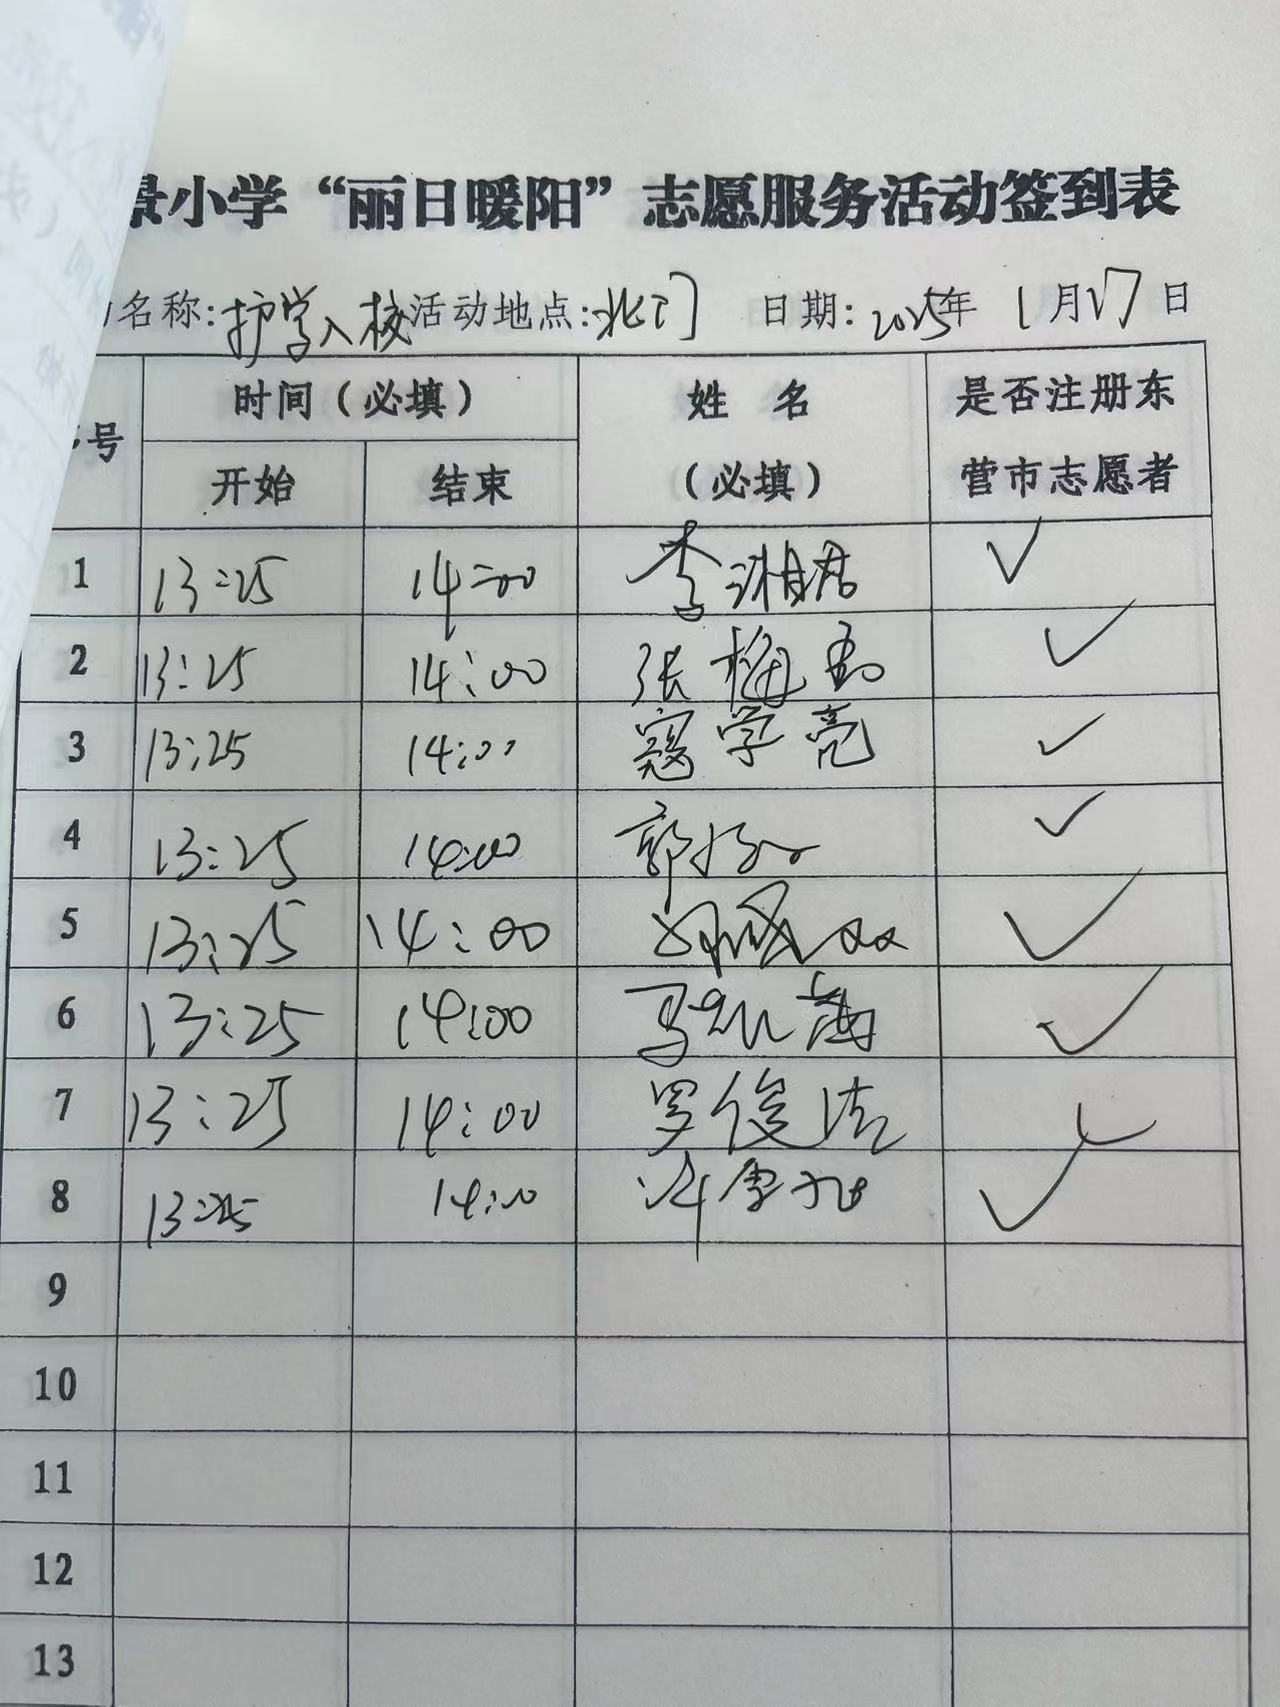 景小学“丽日暖阳”志愿服务活动签到表
名称:护学入校 活动地点:北门 日期:2025年 1月17日
号 时间(必填) 姓名(必填) 是否注册东营市志愿者
开始 结束
1 13:25 14:00 李淑君 ✓
2 13:25 14:00 张梅 ✓
3 13:25 14:00 寇学亮 ✓
4 13:25 14:00 郭 ✓
5 13:25 14:00 ✓
6 13:25 14:00 马凯海 ✓
7 13:25 14:00 罗俊洁 ✓
8 13:25 14:00 ✓
9
10
11
12
13